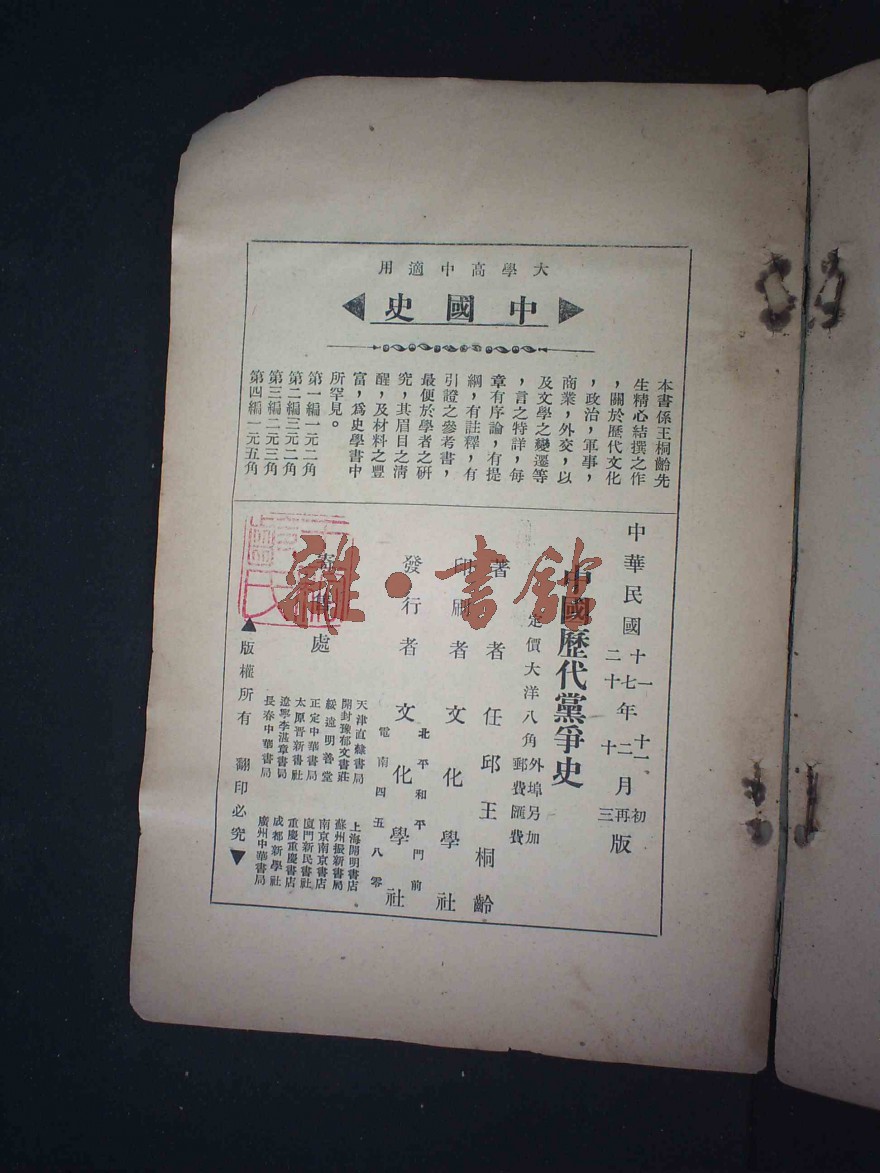 大學高中適用
中國史
本書係王桐齡先
生精心結撰之作
，關於歷代文化
，政治，軍事，
商業，外交，以
及文學之變遷等
，言之特詳，每
章有序論，有提
綱，有註釋，有
引證之參考書，
最便於學者之研
究，其眉目之淸
醒，及材料之豐
富，爲史學書中
所罕見。
第一編一元二角
第二編三元二角
第三編二元三角
第四編一元五角
中華民國十一年十一月初版
十七年二月再版
二十年十月三版
中國歷代黨爭史
定價大洋八角外埠另加郵費匯費
著者任邱王桐齡
印刷者文化學社
發行者文化學社
北平和平門前
電南四五八零
處
天津直隸書局
開封豫郁文書莊
綏遠明善堂
正定中華書局
太原晋新書社
遼寧李湛章書局
長春中華書局
上海開明書店
蘇州振新書局
南京南京書店
廈門新民書社
重慶重慶書店
成都新學社
廣州中華書局
版權所有 翻印必究
雜·書館